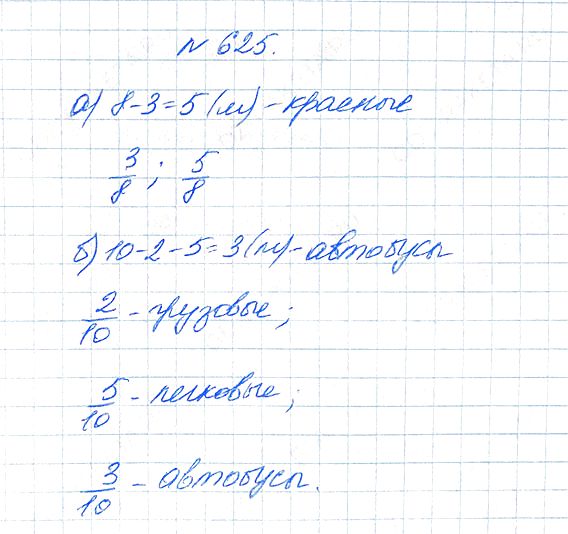 № 625.
а) 8-3=5 (м) - красные
3/8 ; 5/8
б) 10-2-5=3 (м) - автобусы
2/10 - грузовые ;
5/10 - легковые ;
3/10 - автобусы.